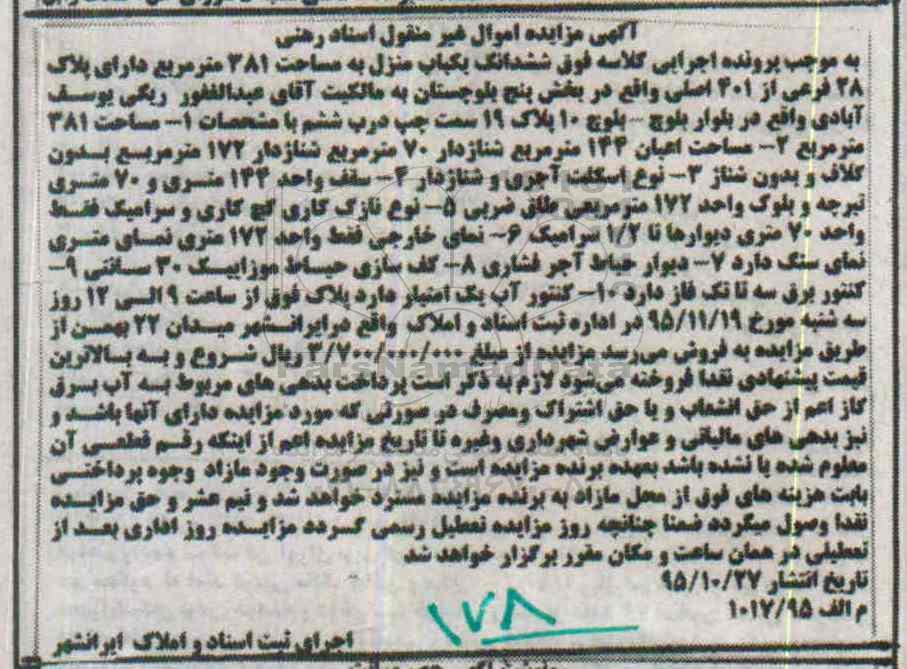 آگهی مزایده اموال غیر منقول اسناد رهنی
به موجب پرونده اجرایی کلاسه فوق ششدانگ یکباب منزل به مساحت ۳۸۱ مترمربع دارای پلاک
۲۸ فرعی از ۴۰۱ اصلی واقع در بخش پنج بلوچستان به مالکیت آقای عبدالغفور ریگی یوسف
آبادی واقع در بلوار بلوچ – بلوچ ۱۰ پلاک ۱۹ سمت چپ درب ششم با مشخصات ۱– مساحت ۳۸۱
مترمربع ۲– مساحت اعیان ۱۴۴ مترمربع شناژدار ۷۰ مترمربع شناژدار ۱۷۲ مترمربع بدون
کلاف و بدون شناژ ۳– نوع اسکلت آجری و شناژدار ۴– سقف واحد ۱۴۴ متری و ۷۰ متری
تیرچه و بلوک واحد ۱۷۲ مترمربعی طاق ضربی ۵– نوع نازک کاری گچ کاری و سرامیک فقط
واحد ۷۰ متری دیوارها تا ۱/۲ سرامیک ۶– نمای خارجی فقط واحد ۱۷۲ متری نمای متری
نمای سنگ دارد ۷– دیوار حیاط آجر فشاری ۸– کف سازی حیاط موزاییک ۳۰ سانتی ۹–
کنتور برق سه تا تک فاز دارد ۱۰– کنتور آب یک امتیاز دارد پلاک فوق از ساعت ۹ الی ۱۲ روز
سه شنبه مورخ ۹۵/۱۱/۱۹ در اداره ثبت اسناد و املاک واقع درایرانشهر میدان ۲۲ بهمن از
طریق مزایده به فروش می‌رسد مزایده از مبلغ ۳/۷۰۰/۰۰۰/۰۰۰ ریال شروع و به بالاترین
قیمت پیشنهادی نقدا فروخته می‌شود لازم به ذکر است پرداخت بدهی های مربوط به آب برق
گاز اعم از حق انشعاب و یا حق اشتراک ومصرف در صورتی که مورد مزایده دارای آنها باشد و
نیز بدهی های مالیاتی و عوارض شهرداری وغیره تا تاریخ مزایده اعم از اینکه رقم قطعی آن
معلوم شده یا نشده باشد بعهده برنده مزایده است و نیز در صورت وجود مازاد وجوه پرداختی
بابت هزینه های فوق از محل مازاد به برنده مزایده مسترد خواهد شد و نیم عشر و حق مزایده
نقدا وصول میگردد ضمنا چنانچه روز مزایده تعطیل رسمی گردد مزایده روز اداری بعد از
تعطیلی در همان ساعت و مکان مقرر برگزار خواهد شد
تاریخ انتشار ۹۵/۱۰/۲۷
م الف ۱۰۱۷/۹۵
۱۷۸
اجرای ثبت اسناد و املاک ایرانشهر
ParsNamadData